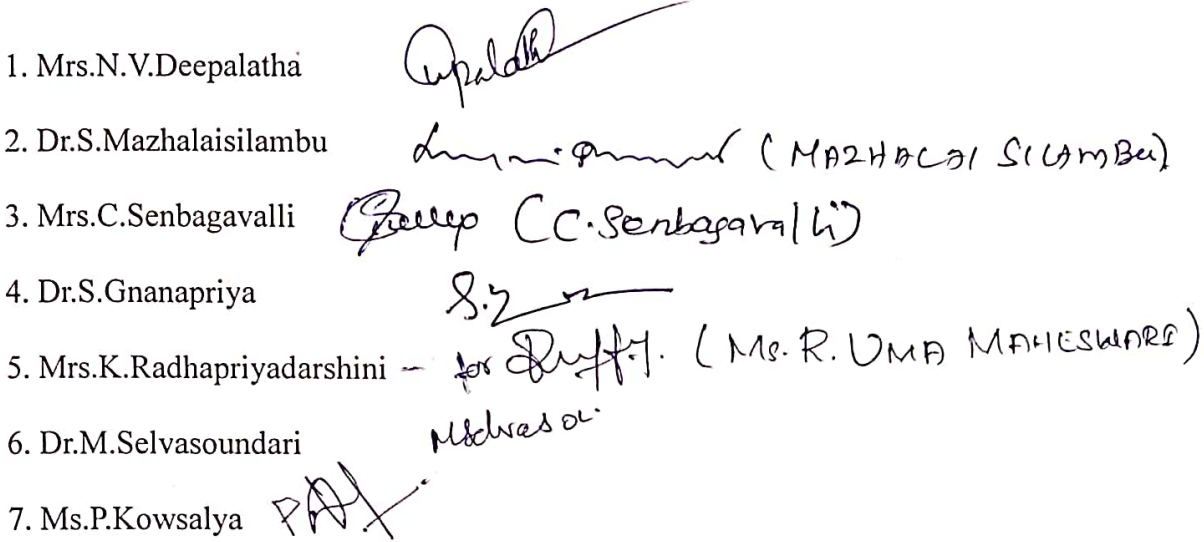 1. Mrs.N.V.Deepalatha
2. Dr.S.Mazhalaisilambu (MAZHALAI SILAMBU)
3. Mrs.C.Senbagavalli (C.Senbagavalli)
4. Dr.S.Gnanapriya
5. Mrs.K.Radhapriyadarshini - for (Ms. R. UMA MAHESWARI)
6. Dr.M.Selvasoundari
7. Ms.P.Kowsalya